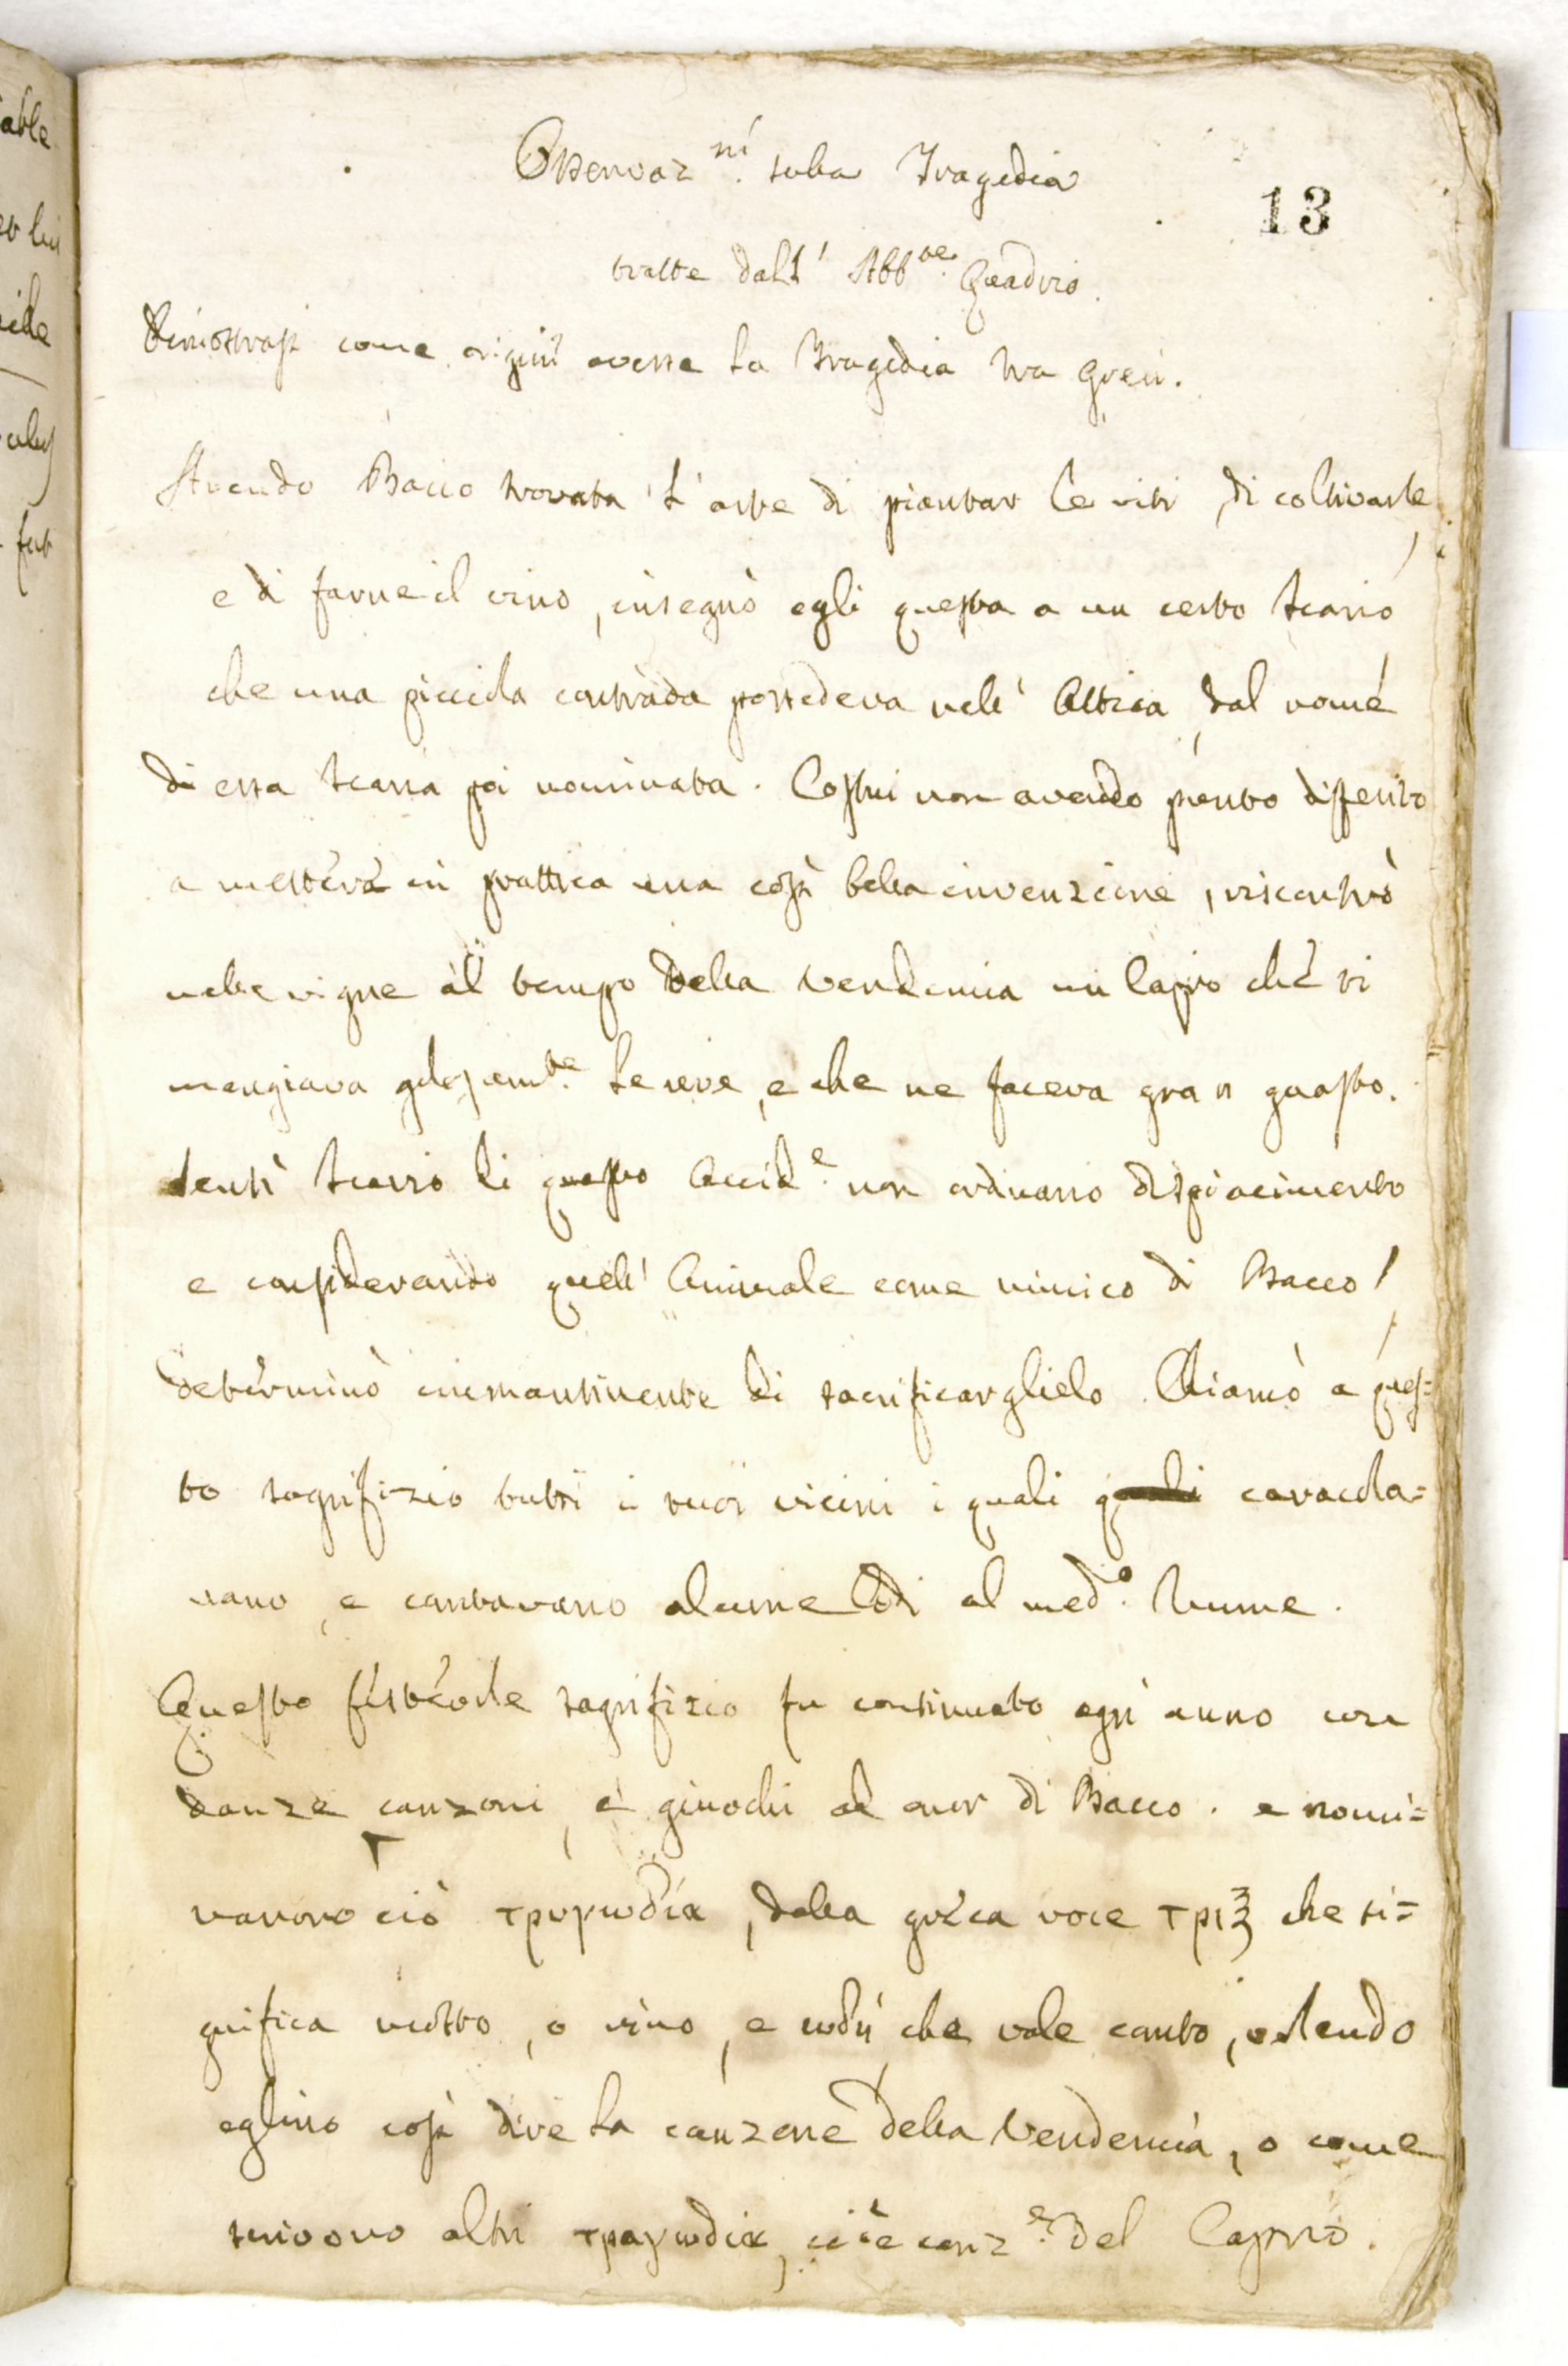 Osservaz.ni sulla Tragedia
13
tratte dall' Abb.te Quadrio.
Dimostrasi come origine avesse la Tragedia tra Greci.
Avendo Bacco trovata l'arte di piantar le viti, di coltivarle,
e di farne il vino, insegnò egli questa a un certo Icario,
che una piccola contrada possedeva nell' Attica, dal nome
di essa Icaria poi nominata. Costui non avendo punto differito
a mettere in prattica una così bella invenzione, riscontrò
nelle vigne al tempo della Vendemia un Capro che vi
mangiava golosam.te le uve, e che ne faceva gran guasto.
Sentì Icario di questo Accid.e non ordinario dispiacimento
e considerando quell' Animale come nimico di Bacco,
determinò inmantinente di sacrificarglielo. Chiamò a ques=
to sagrifizio tutti i suoi vicini i quali quali caracola=
vano, e cantavano alcune Lodi al med.o Nume.
Questo festevole sagrifizio fu continuato ogni anno con
danze canzoni, e giuochi ad onor di Bacco. e nomi=
narono ciò τρυγωδία, dalla greca voce τριξ che si=
gnifica mosto, o vino, e ωδή che vale canto, volendo
eglino così dire la canzone della Vendemia, o come
scrivono altri τραγωδια, cioè canz.e del Capro.